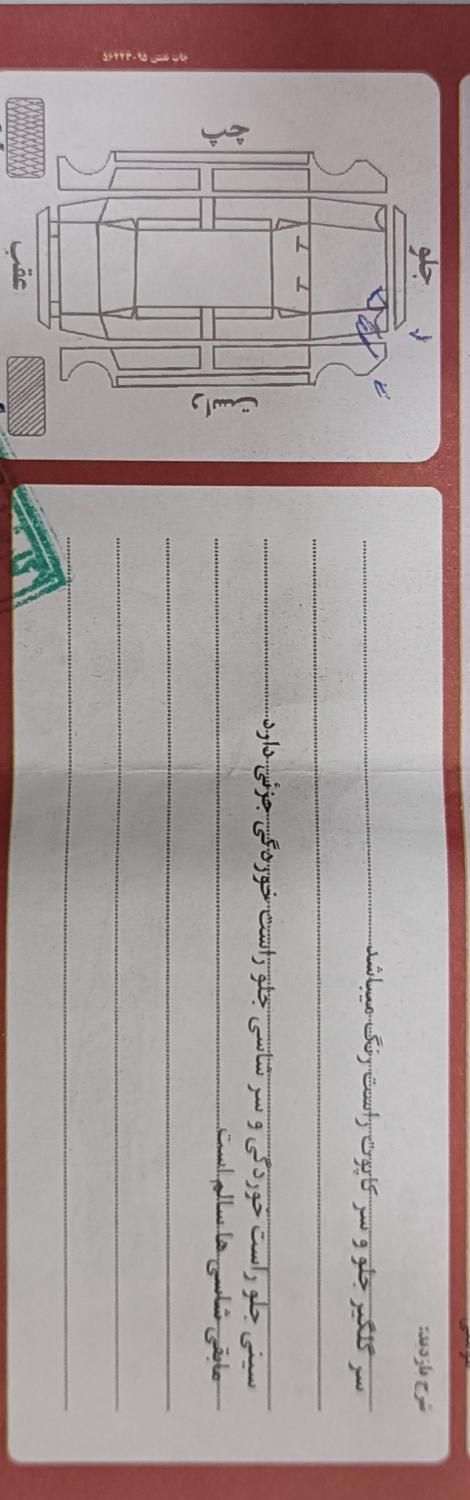 چاپ نقش ۵۶۴۲۳۰۹۵
چپ
جلو
عقب
راست
شرح بازدید:
سر گلگیر جلو و سر کاپوت راست رنگ میباشد
سینی جلو راست خوردگی و سر شاسی جلو راست خوردگی جزئی دارد
مابقی شاسی ها سالم است